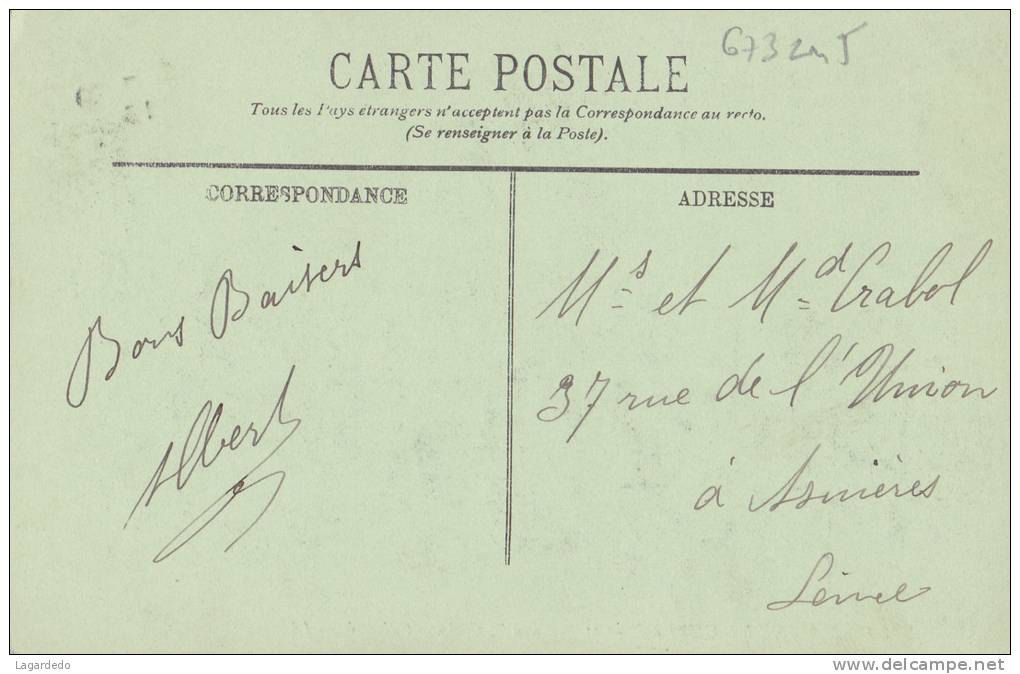 CARTE POSTALE
Tous les Pays étrangers n'acceptent pas la Correspondance au recto.
(Se renseigner à la Poste).
CORRESPONDANCE
Bons Baisers
Albert
ADRESSE
Ms et Md Crabol
37 rue de l'Union
à Asnières
Seine
673
Lagardedo
www.delcampe.net